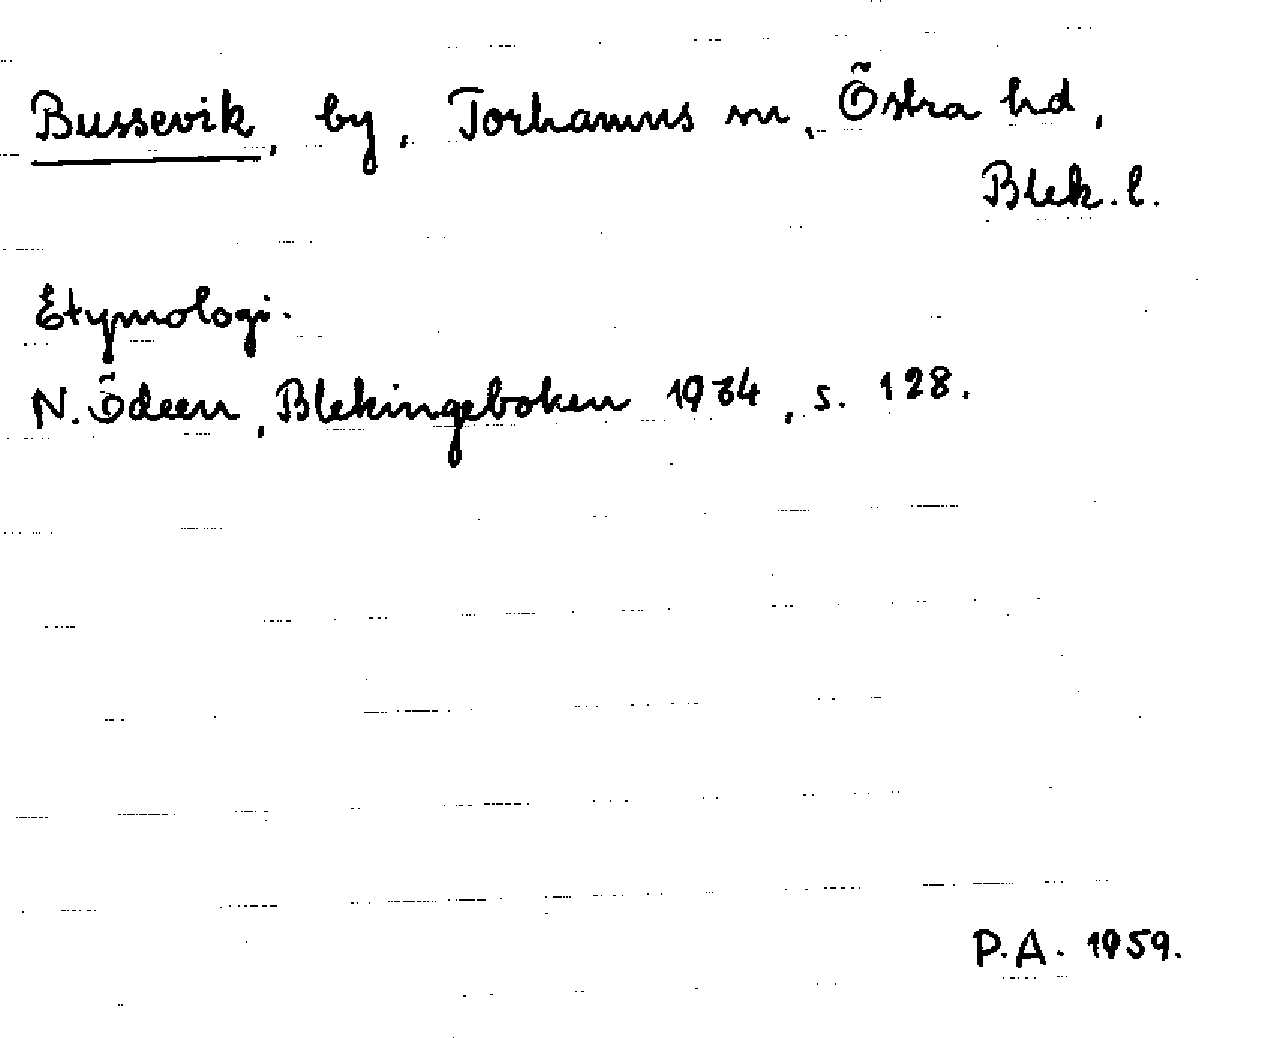 Bussevik, by, Torhamns sn, Östra hd,
Blek. l.
Etymologi.
N. Ödeen, Blekingeboken 1934, s. 128.
P.A. 1959.